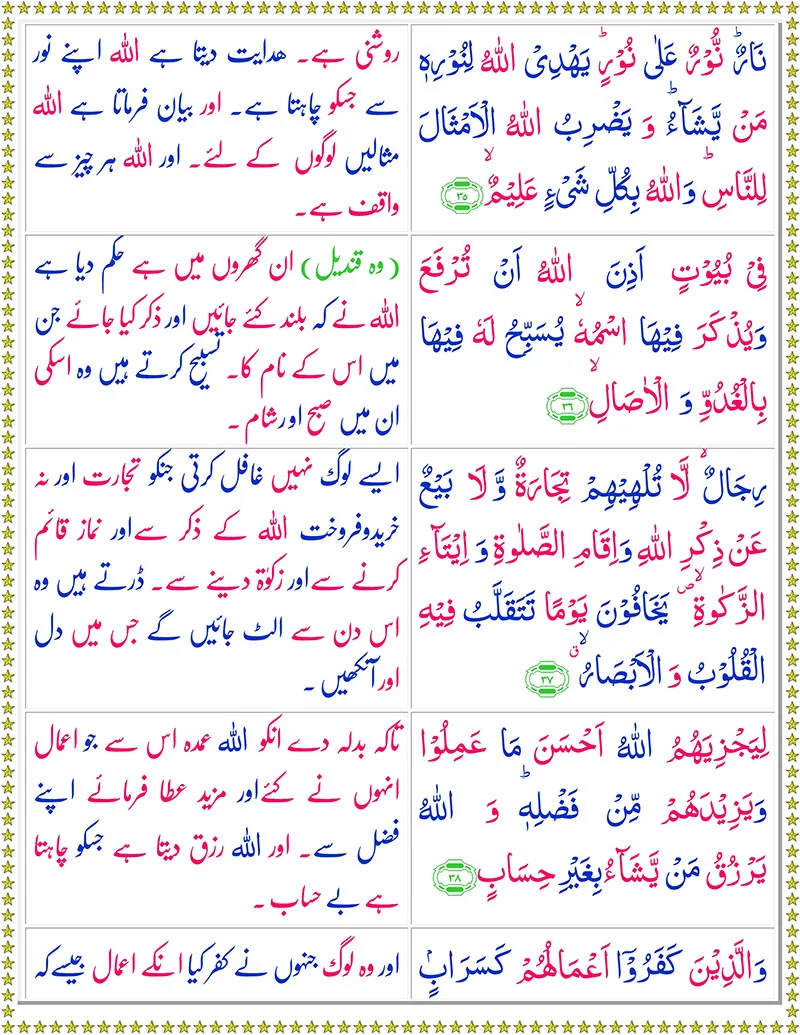 نَارٌ ؕ نُوْرٌ عَلٰى نُوْرٍ ؕ يَهْدِى اللّٰهُ لِنُوْرِهٖ
مَنْ يَّشَآءُ ؕ وَ يَضْرِبُ اللّٰهُ الْاَمْثَالَ
لِلنَّاسِ ؕ وَاللّٰهُ بِكُلِّ شَىْءٍ عَلِيْمٌ ۙ ﴿۳۵﴾
روشنی ہے۔ ھدایت دیتا ہے اللہ اپنے نور
سے جسکو چاہتا ہے۔ اور بیان فرماتا ہے اللہ
مثالیں لوگوں کے لئے۔ اور اللہ ہر چیز سے
واقف ہے۔
فِىْ بُيُوْتٍ اَذِنَ اللّٰهُ اَنْ تُرْفَعَ
وَيُذْكَرَ فِيْهَا اسْمُهٗ ۙ يُسَبِّحُ لَهٗ فِيْهَا
بِالْغُدُوِّ وَ الْاٰصَالِ ۙ ﴿۳۶﴾
(وہ قندیل) ان گھروں میں ہے حکم دیا ہے
اللہ نے کہ بلند کئے جائیں اور ذکر کیا جائے جن
میں اس کے نام کا۔ تسبیح کرتے ہیں وہ اسکی
ان میں صبح اور شام ۔
رِجَالٌ ۙ لَّا تُلْهِيْهِمْ تِجَارَةٌ وَّلَا بَيْعٌ
عَنْ ذِكْرِ اللّٰهِ وَاِقَامِ الصَّلٰوةِ وَ اِيْتَآءِ
الزَّكٰوةِ ۙ ص يَخَافُوْنَ يَوْمًا تَتَقَلَّبُ فِيْهِ
الْقُلُوْبُ وَ الْاَبْصَارُ ۙ ق ﴿۳۷﴾
ایسے لوگ نہیں غافل کرتی جنکو تجارت اور نہ
خریدوفروخت اللہ کے ذکر سے اور نماز قائم
کرنے سے اور زکوٰۃ دینے سے۔ ڈرتے ہیں وہ
اس دن سے الٹ جائیں گے جس میں دل
اور آنکھیں ۔
لِيَجْزِيَهُمُ اللّٰهُ اَحْسَنَ مَا عَمِلُوْا
وَيَزِيْدَهُمْ مِّنْ فَضْلِهٖ ؕ وَ اللّٰهُ
يَرْزُقُ مَنْ يَّشَآءُ بِغَيْرِ حِسَابٍ ﴿۳۸﴾
تاکہ بدلہ دے انکو اللہ عمدہ اس سے جو اعمال
انہوں نے کئے اور مزید عطا فرمائے اپنے
فضل سے۔ اور اللہ رزق دیتا ہے جسکو چاہتا
ہے بے حساب ۔
وَالَّذِيْنَ كَفَرُوْۤا اَعْمَالُهُمْ كَسَرَابٍۭ
اور وہ لوگ جنہوں نے کفر کیا انکے اعمال جیسے کہ